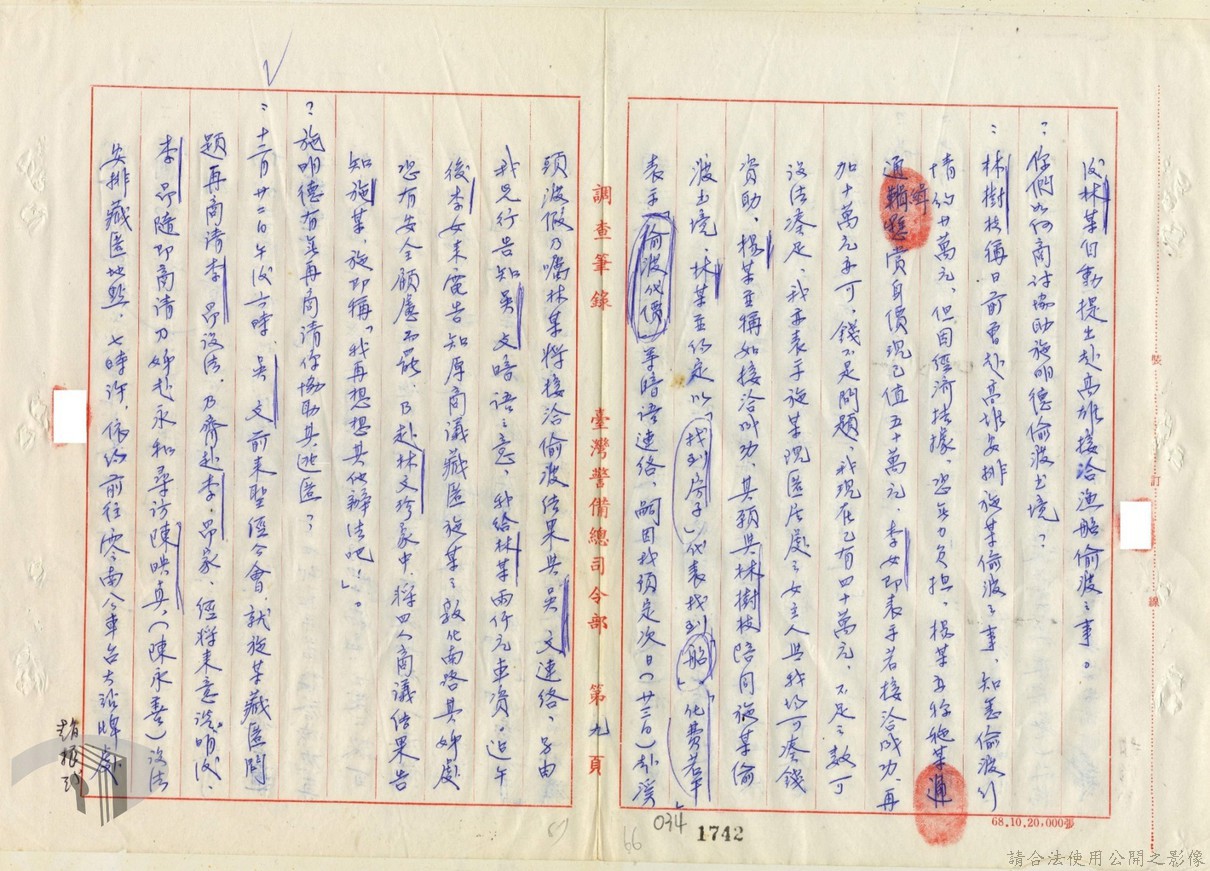 後林某自動提出赴高雄接洽漁船偷渡之事。
？你們如何商討協助施明德偷渡出境？
：林樹枝稱日前曾赴高雄安排施某偷渡之事，知悉偷渡行
情約廿萬元，但因經濟拮据，恐無力負担，楊某且稱施某通
通緝懸賞身價現已值五十萬元，李女即表示若接洽成功，再
加十萬元亦可，錢不是問題，我現在已有四十萬元，不足之數可
設法湊足，我亦表示施某現匿居處之女主人與我均可湊錢
資助，楊某並稱如接洽成功，其願與林樹枝陪同施某偷
渡出境，林某並約定以「找到房子」代表找到船，「化費若干」
表示偷渡代價等暗語連絡，嗣因我須定次日（廿三日）赴溪
調查筆錄 臺灣警備總司令部 第九頁
頭渡假乃囑林某將接洽偷渡結果與吳文連絡，另由
我先行告知吳文暗語之意，我給林某兩仟元車資，迄午
後李女來電告知原商議藏匿施某之敦化南路其姊處
恐有安全顧慮不能，乃赴林文珍家中，將四人商議結果告
知施某，施即稱「我再想想其他辦法吧！」。
？施明德有無再商請你協助其逃匿？
：十二月廿二日午後六時，吳文前來聖經公會，就施某藏匿問
題再商請李昂設法，乃齊赴李昂家，經將來意說明後，
李昂隨即商請乃姊赴永和尋訪陳映真（陳永善）設法
安排藏匿地點，七時許，依約前往零南公車台大站牌處
趙振貳
68.10.20,000張
裝 訂 線
034
1742
66
請合法使用公開之影像